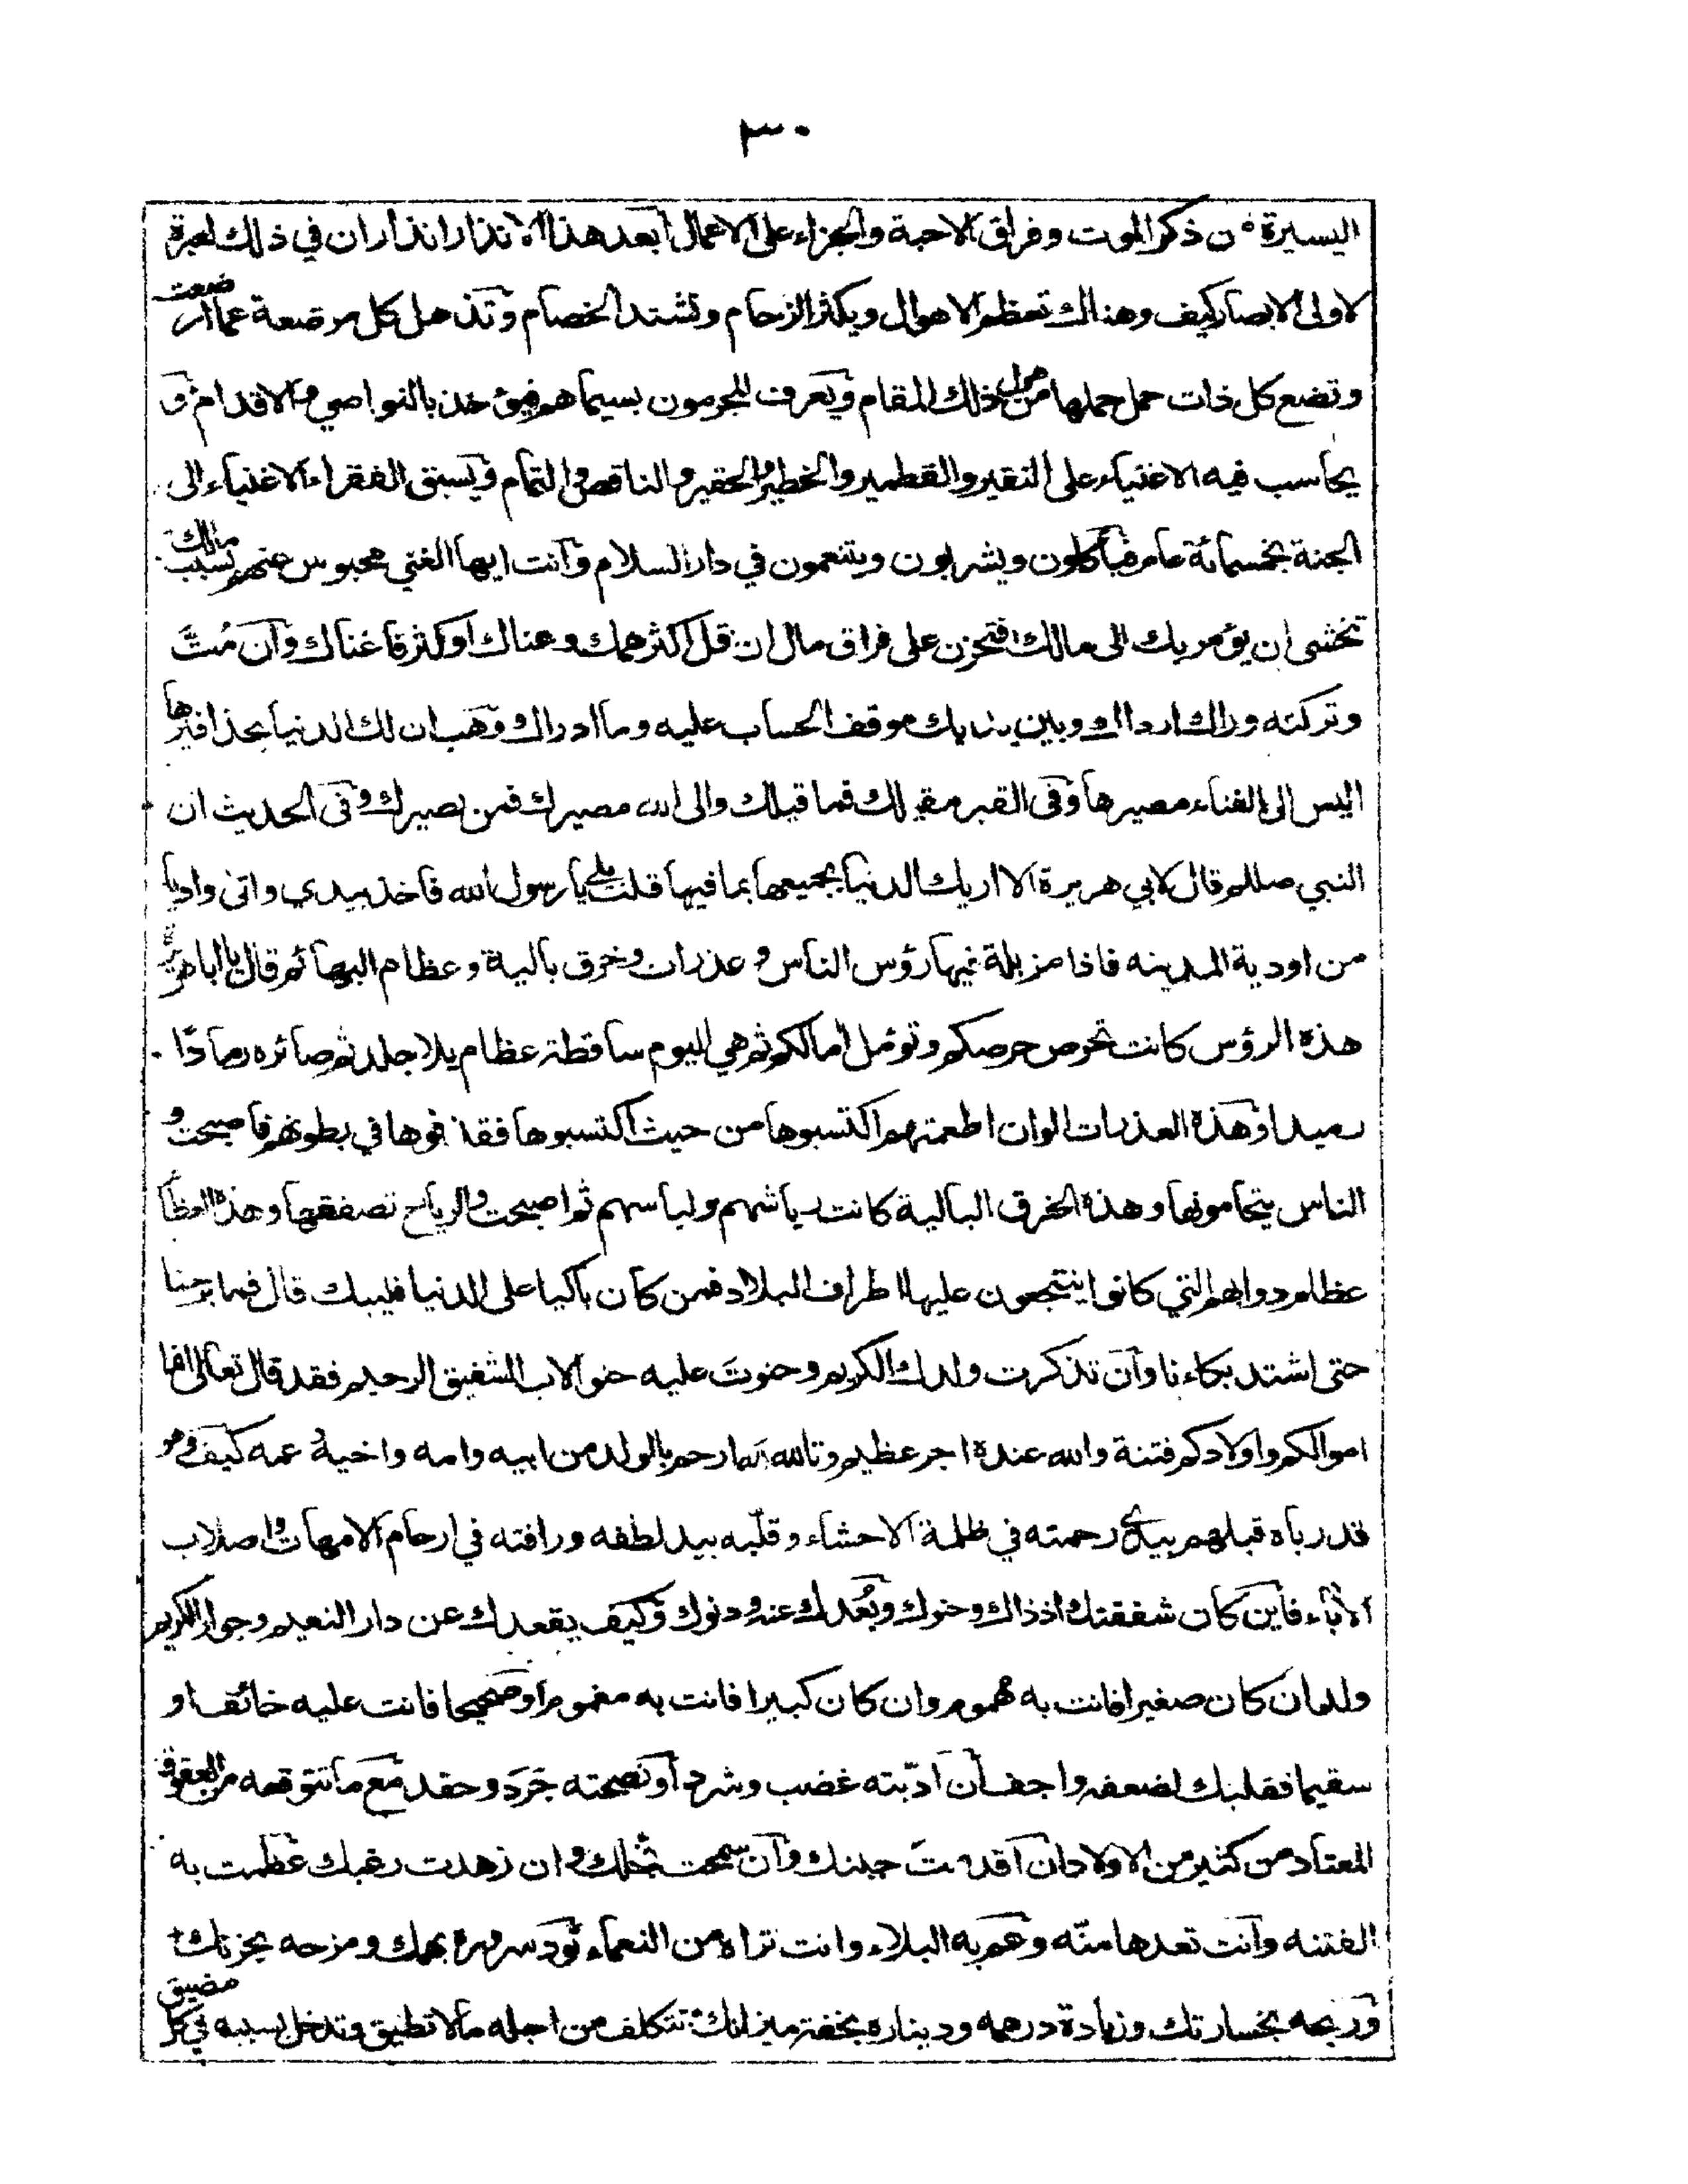 ٣٠
اليسيرة من ذكر الموت وفراق الاحبة والجزاء على الاعمال ابعد هذا الانذار انذار ان في ذلك لعبرة
لاولى الابصار كيف وهنالك تعظم الاهوال ويكثر الزحام وتشتد الخصام وتذهل كل مرضعة عما ارضعت
وتضع كل ذات حمل حملها من هول ذلك المقام ويعرف المجرمون بسيماهم فيؤخذ بالنواصي والاقدام و
يحاسب فيه الاغنياء على النقير والقطمير والخطير والحقير والناقص والتمام ويسبق الفقراء الاغنياء الى
الجنة بخمسمائة عام فيأكلون ويشربون ويتنعمون في دار السلام وانت ايها الغني محبوس عنهم بسبب مالك
تخشى ان يؤمر بك الى مالك افتحزن على فراق مال ان قل اكثر همك وعناك او كثر فاغناك وان مُتَّ
وتركته وراك ارداك وبين يديك موقف الحساب عليه وما ادراك وهب ان لك الدنيا بحذافيرها
اليس الى الفناء مصيرها وفى القبر مقيلك فما قيلك والى الله مصيرك فمن نصيرك وفى الحديث ان
النبي صللم قال لابي هريرة الا اريك الدنيا بجميعها بما فيها قلت بلى يا رسول الله فاخذ بيدي واتى واديا
من اودية المدينه فاذا مزبلة فيها رؤس الناس وعذرات وخرق بالية وعظام البهائم قال يا ابا هريرة
هذه الرؤس كانت تحرص حرصكم وتؤمل امالكم ثم هي اليوم ساقطة عظام بلا جلد ثم صائره رمادًا
رميدا وهذه العذرات الوان اطعمتهم اكتسبوها من حيث اكتسبوها فقذفوها في بطونهم فاصبحت و
الناس يتحامونها وهذه الخرق البالية كانت رياشهم ولباسهم ثم اصبحت والرياح تصفقها وهذه العظام
عظام دوابهم التي كانوا ينتجعون عليها اطراف البلاد فمن كان باكيا على الدنيا فليبك قال فما برحنا
حتى اشتد بكاءنا وان تذكرت ولدك الكريم وحنوتَ عليه حنو الاب الشفيق الرحيم فقد قال تعالى انما
اموالكم واولادكم فتنة والله عنده اجر عظيم وتالله انه ارحم بالولد من ابيه وامه واخيه و عمه كيف وهو
قد رباه قبلهم بيدي رحمته في ظلمة الاحشاء وقلّبه بيد لطفه ورافته في ارحام الامهات واصلاب
الأباء فاين كان شفقتك اذ ذاك وحنوك وبُعدك عنه ودنوك وكيف يقعدك عن دار النعيم وجوار الكريم
ولد ان كان صغيرا فانت به مهموم وان كان كبيرا فانت به مغموم او صحيحا فانت عليه خائف او
سقيما فقلبك لضعفه واجف ان ادّبته غضب وشرد او نصحته حَرَدَ وحقد مع ما تتوقعه من العقوق
المعتاد من كثير من الاولاد ان اقدمتَ جبنك وان سمحت بخلك وان زهدت رغبك عظمت به
الفتنه وانت تعدها منّه وعم به البلاء وانت تراه من النعماء تود سروره بهمك ومزحه بحزنك
وربحه بخسارتك وزيادة درهمه وديناره بخفة ميزانك تتكلف من اجله ما لا تطيق وتدخل بسببه في كل مضيق